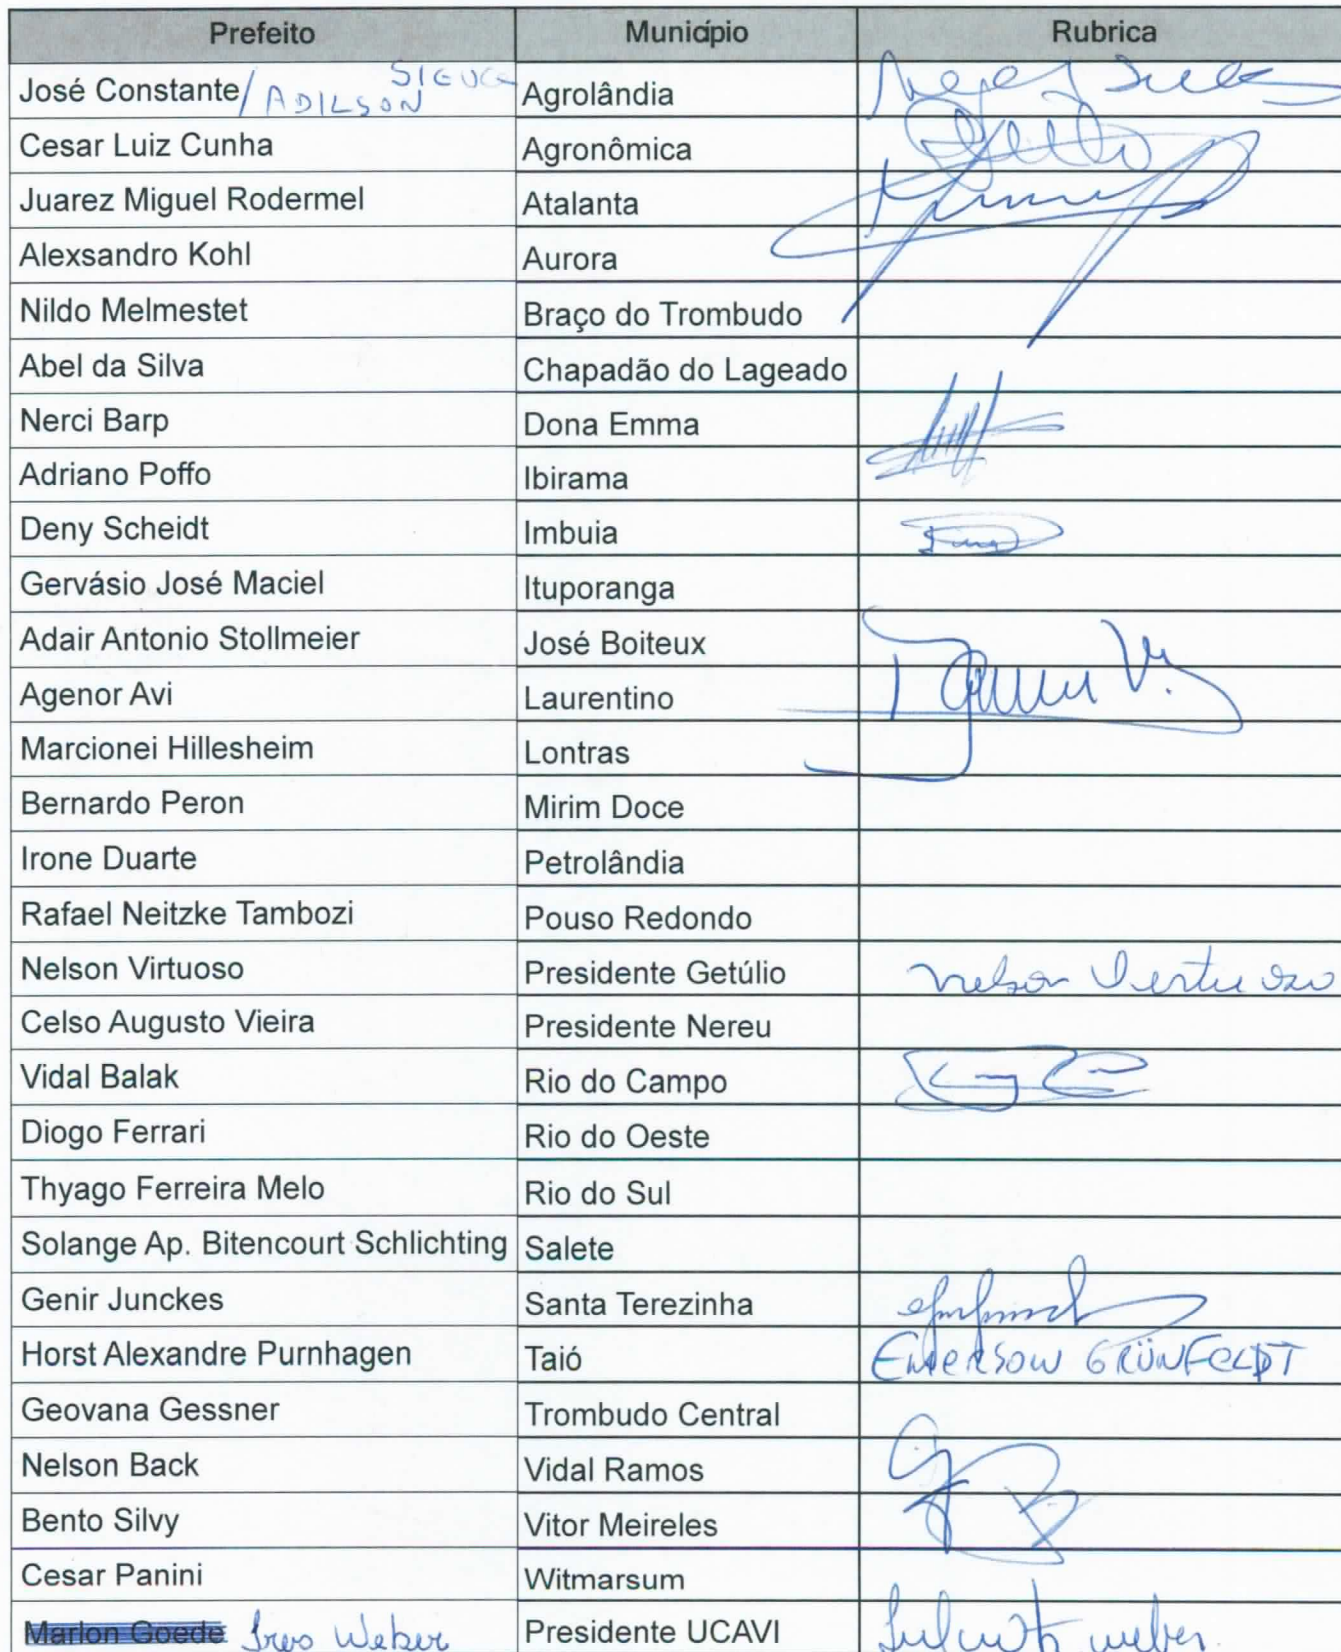 Prefeito Município Rubrica
José Constante/ ADILSON Agrolândia
Cesar Luiz Cunha Agronômica
Juarez Miguel Rodermel Atalanta
Alexsandro Kohl Aurora
Nildo Melmestet Braço do Trombudo
Abel da Silva Chapadão do Lageado
Nerci Barp Dona Emma
Adriano Poffo Ibirama
Deny Scheidt Imbuia
Gervásio José Maciel Ituporanga
Adair Antonio Stollmeier José Boiteux
Agenor Avi Laurentino
Marcionei Hillesheim Lontras
Bernardo Peron Mirim Doce
Irone Duarte Petrolândia
Rafael Neitzke Tambozi Pouso Redondo
Nelson Virtuoso Presidente Getúlio Nelson Virtuoso
Celso Augusto Vieira Presidente Nereu
Vidal Balak Rio do Campo
Diogo Ferrari Rio do Oeste
Thyago Ferreira Melo Rio do Sul
Solange Ap. Bitencourt Schlichting Salete
Genir Junckes Santa Terezinha
Horst Alexandre Purnhagen Taió EMERSON GRÜNFELDT
Geovana Gessner Trombudo Central
Nelson Back Vidal Ramos
Bento Silvy Vitor Meireles
Cesar Panini Witmarsum
Marlon Goede Weber Presidente UCAVI weber